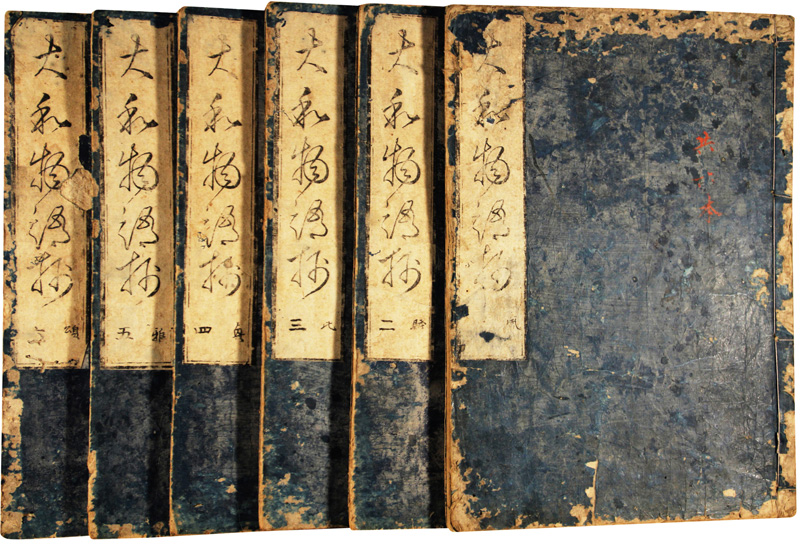 共六本
大和物語抄
風
大和物語抄
賦 二
大和物語抄
比 三
大和物語抄
興 四
大和物語抄
雅 五
大和物語抄
頌